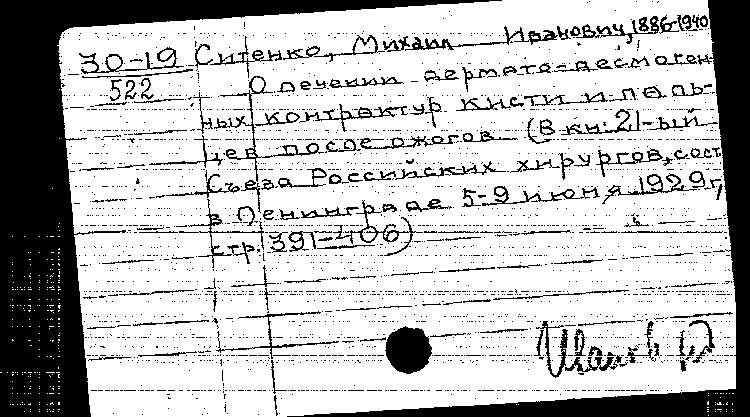 30-19 Ситенко, Михаил Иванович, 1886-1940
522 О лечении дермато-десмоген-
ных контрактур кисти и паль-
цев после ожогов (В кн: 21-ый
Съезд Российских хирургов, сост.
в Ленинграде 5-9 июня 1929 г,
стр. 391-406)